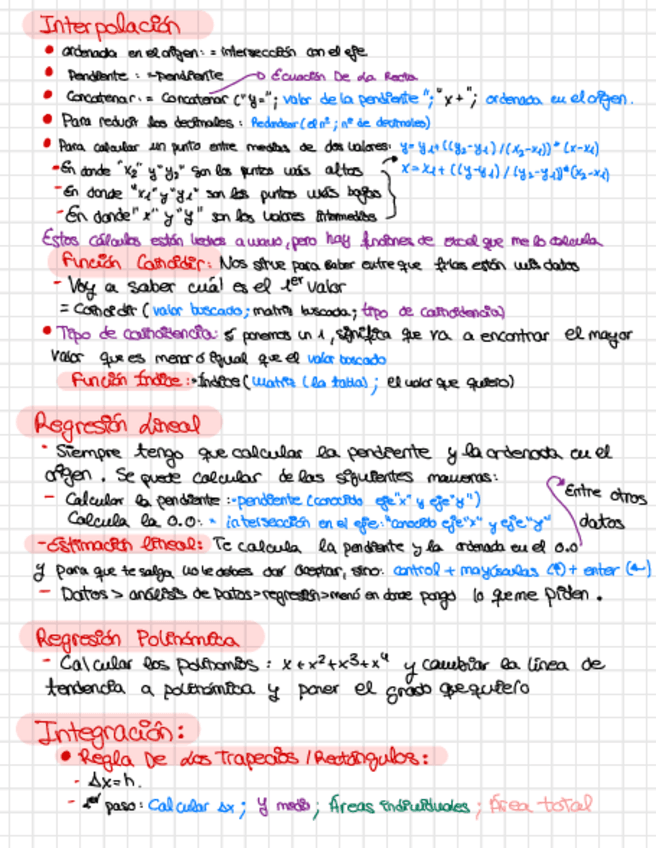 Interpolación
• ordenada en el origen: = intersección con el eje
• Pendiente : =pendiente → Ecuación De La Recta
• Concatenar: = Concatenar ("y="; valor de la pendiente "; "x + "; ordenada en el origen.
• Para reducir los decimales: Redondear (el nº ; nº de decimales)
• Para calcular un punto entre medias de dos valores: y = y1+((y2-y1)/(x2-x1))*(x-x1)
-En donde "x2" y "y2" son los puntos más altos x = x1+((y-y1)/(y2-y1))*(x2-x1)
-En donde "x1" y "y1" son los puntos más bajos
-En donde "x" y "y" son los valores intermedios
Estos cálculos están hechos a mano, pero hay funciones de excel que me lo calcula
Función Coincidir: Nos sirve para saber entre que filas están mis datos
- Voy a saber cuál es el 1er valor
= Coincidir (valor buscado; matriz buscada; tipo de coincidencia)
• Tipo de coincidencia: si ponemos un 1, significa que va a encontrar el mayor
valor que es menor ó igual que el valor buscado
Función Índice: = Índice (matriz (la tabla) ; el valor que quiero)
Regresión Lineal
- Siempre tengo que calcular la pendiente y la ordenada en el
origen. Se puede calcular de las siguientes maneras:
- Calcular la pendiente : =pendiente (conocido eje "x" y eje "y")
Calcula la 0.0: = intersección en el eje: "conocido eje "x" y eje "y"
Entre otros
datos
-Estimación lineal: Te calcula la pendiente y la ordenada en el 0.0
y para que te salga, no le debes dar aceptar, sino: control + mayúsculas (⇧) + enter (↵)
- Datos > análisis de Datos > regresión > menú en donde pongo lo que me piden.
Regresión Polinómica
- Calcular los polinomios : x + x²+x³+x⁴ y cambiar la línea de
tendencia a polinómica y poner el grado que quiero
Integración:
• Regla De Los Trapecios / Rectángulos:
- Δx=h.
- 1er paso: Calcular Δx ; y medio ; Áreas individuales ; Área total